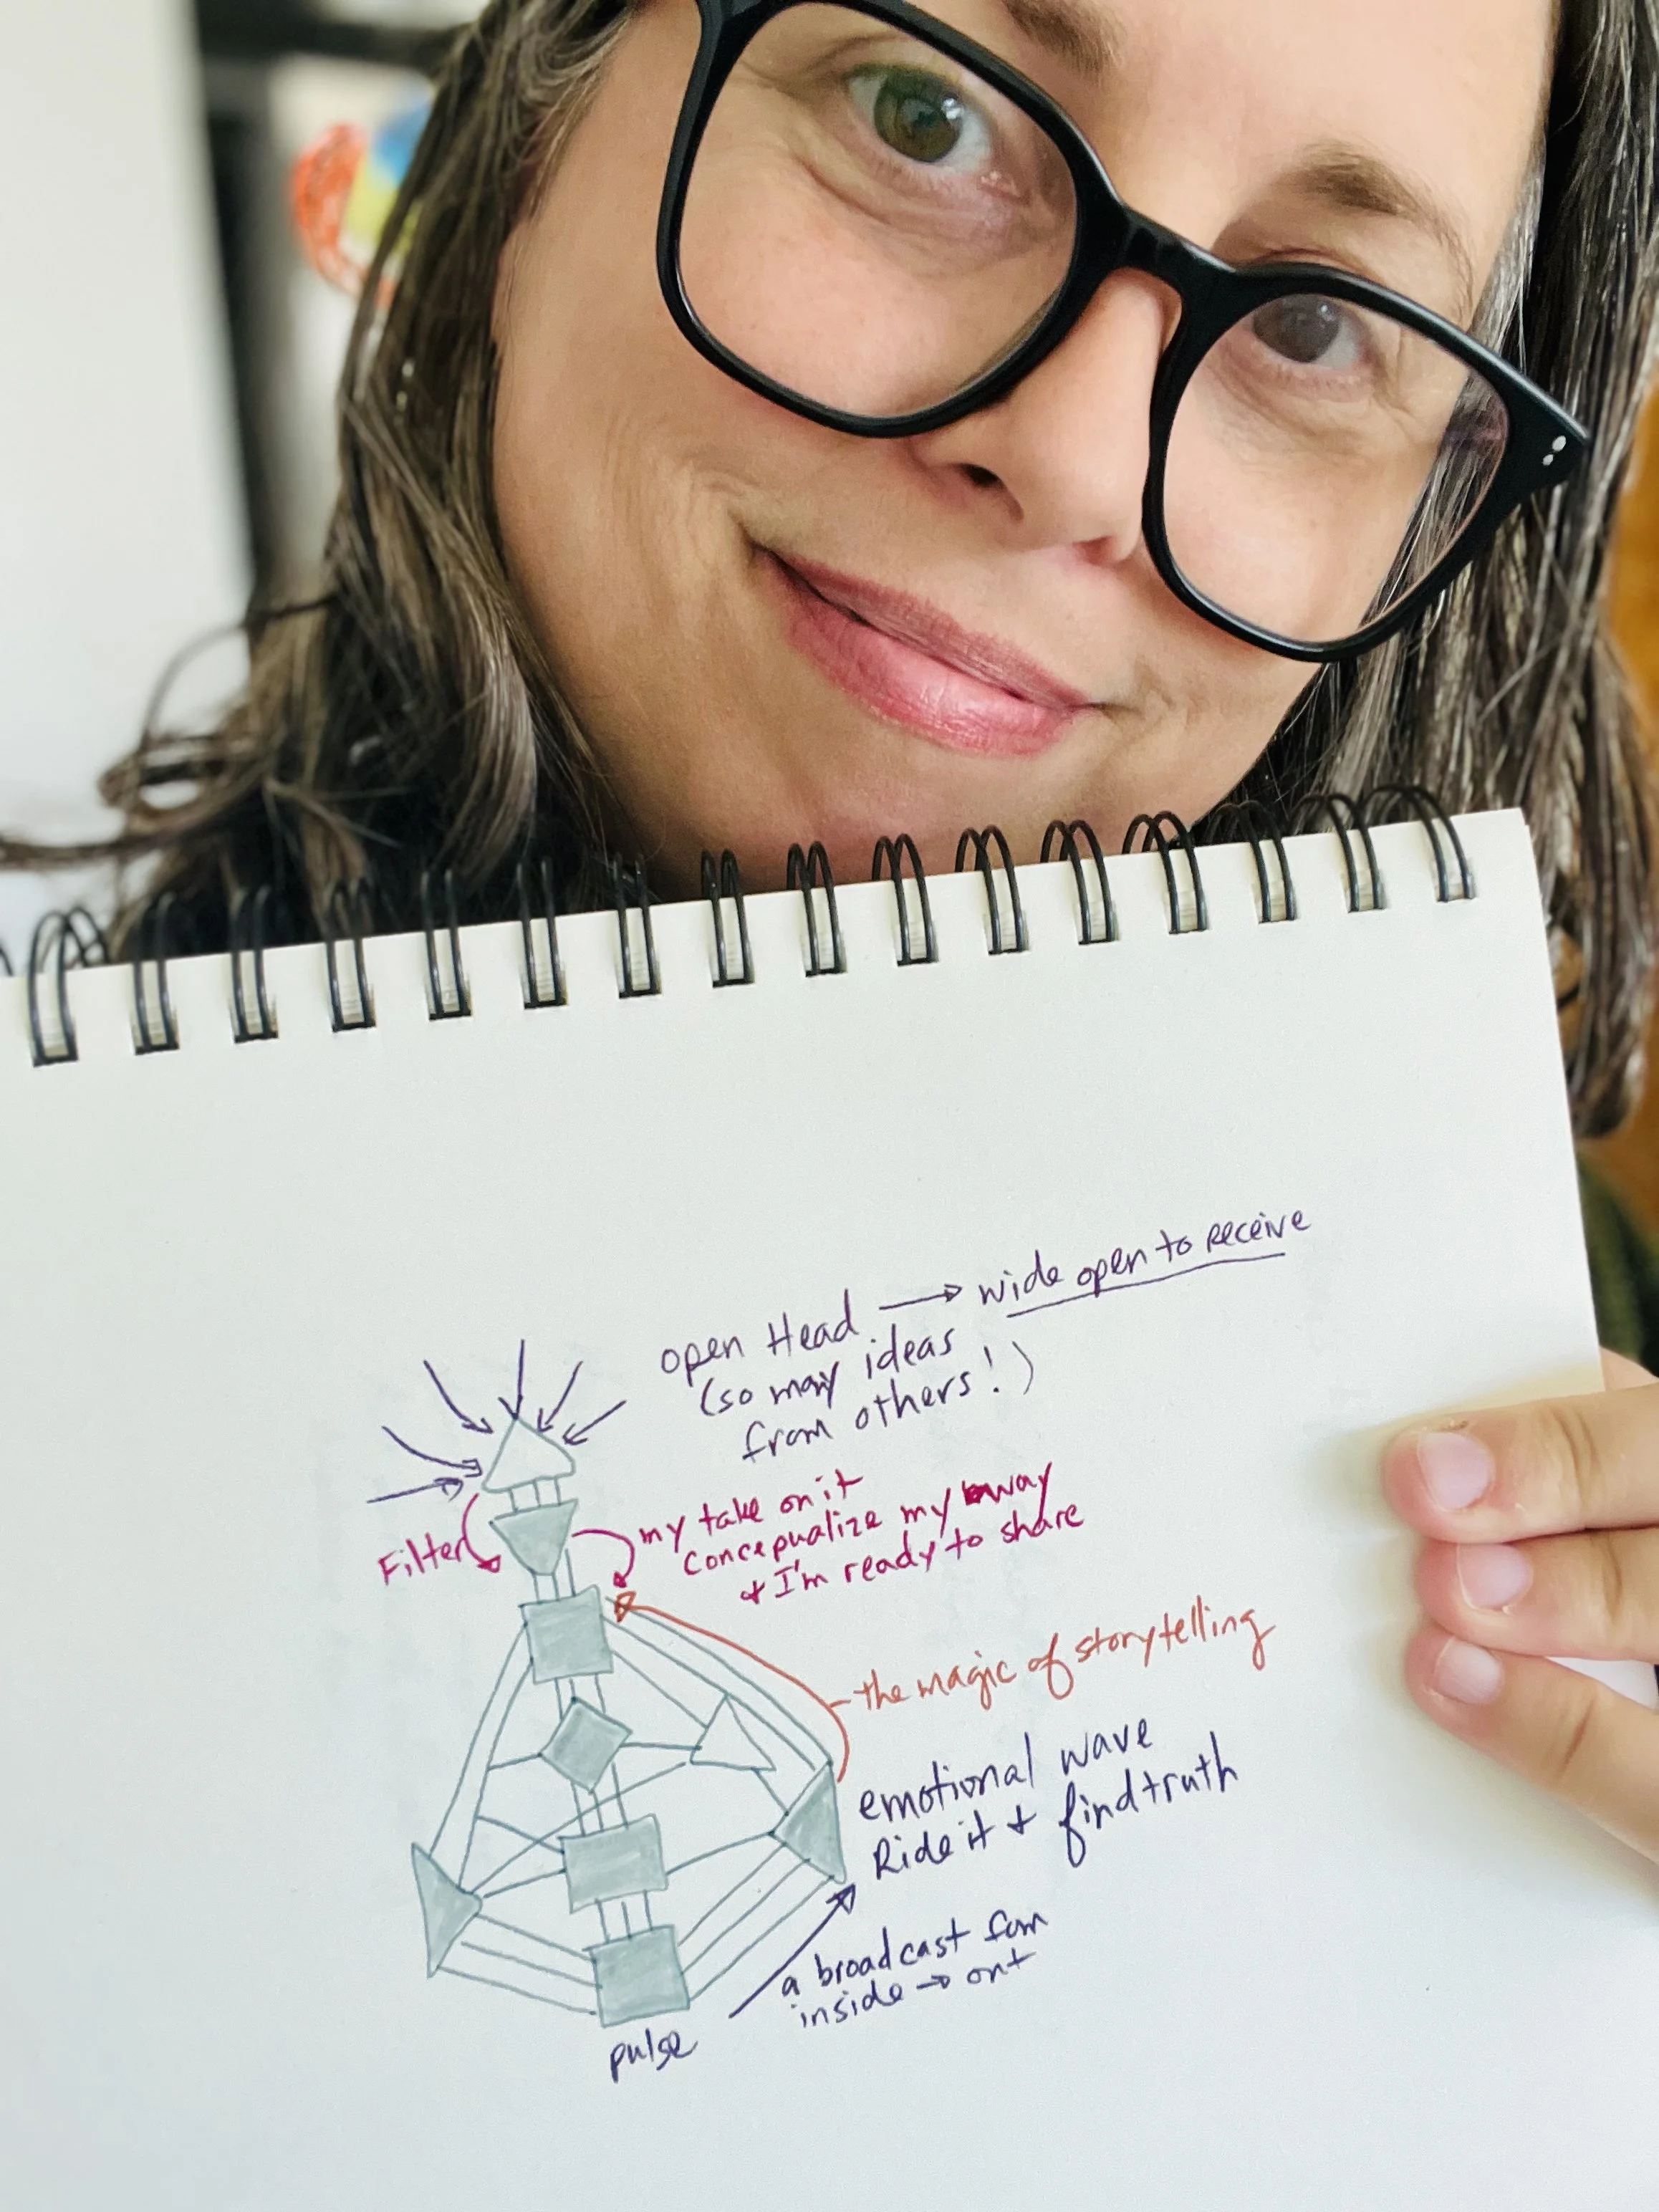 open Head → wide open to receive
(so many ideas
from others!)
Filter
my take on it
concepualize my way
+ I'm ready to share
the magic of storytelling
emotional wave
Ride it + find truth
a broadcast from
inside → out
pulse